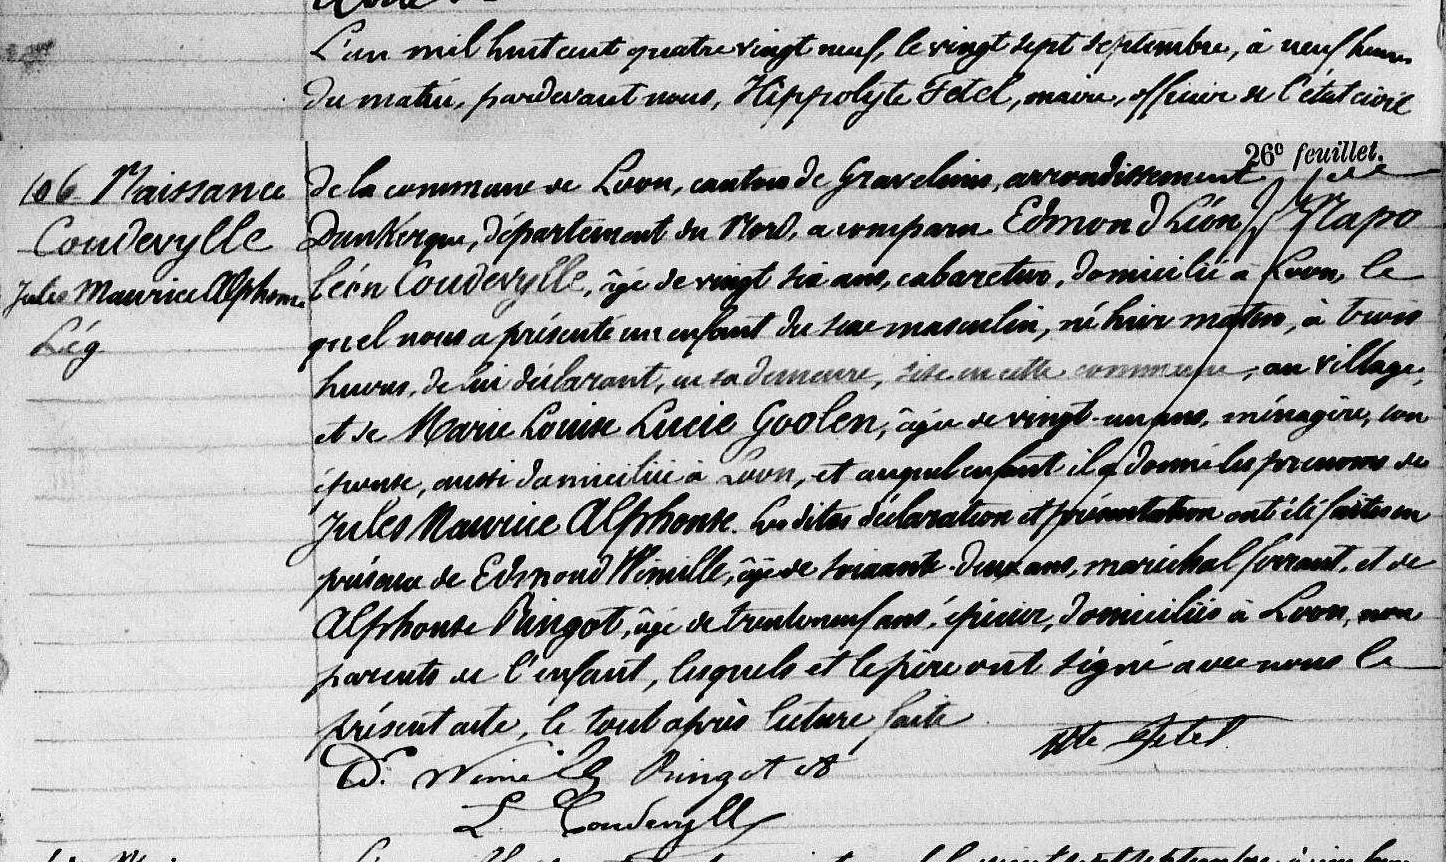 L'an mil huit cent quatre vingt neuf, le vingt sept septembre, à neuf heures
du matin, pardevant nous, Hippolyte Fetel, maire, officier de l'état civil
26e feuillet.
106 Naissance
Coudevylle
Jules Maurice Alphonse
Lég
de la commune de Loon, canton de Gravelines, arrondissement de
Dunkerque, département du Nord, a comparu Edmond Léon Napo
léon Coudevylle, âgé de vingt six ans, cabaretier, domicilié à Loon, le
quel nous a présenté un enfant du sexe masculin, né hier matin, à trois
heures, de lui déclarant, en sa demeure, sise en cette commune, au village,
et de Marie Louise Lucie Goolen, âgée de vingt-un ans, ménagère, son
épouse, aussi domiciliée à Loon, et auquel enfant il a donné les prénoms de
Jules Maurice Alphonse. Les dites déclaration et présentation ont été faites en
présence de Edmond Wimille, âgé de soixante-deux ans, maréchal ferrant, et de
Alphonse Ringot, âgé de trente neuf ans, épicier, domiciliés à Loon, non
parents de l'enfant, lesquels et le père ont signé avec nous le
présent acte, le tout après lecture faite
Hte Fetel
Ed. Wimille Ringot A
L. Coudevylle